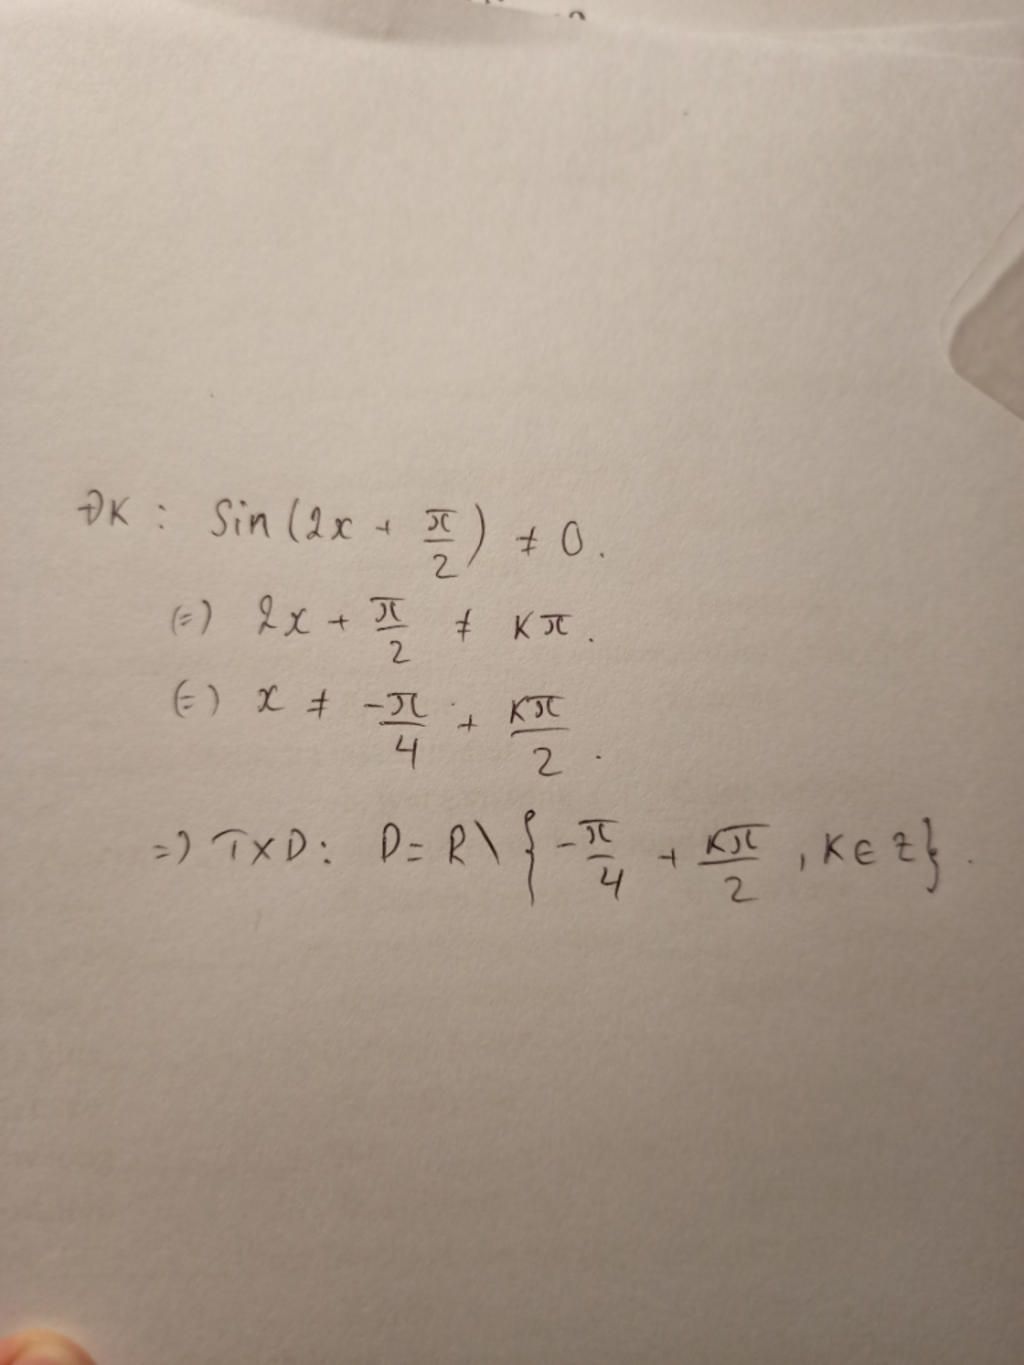 ĐK : Sin (2x + π/2) ≠ 0.
(=) 2x + π/2 ≠ Kπ.
(=) x ≠ -π/4 + Kπ/2.
=) TXD : D = R \ { -π/4 + Kπ/2 , K ∈ Z }.